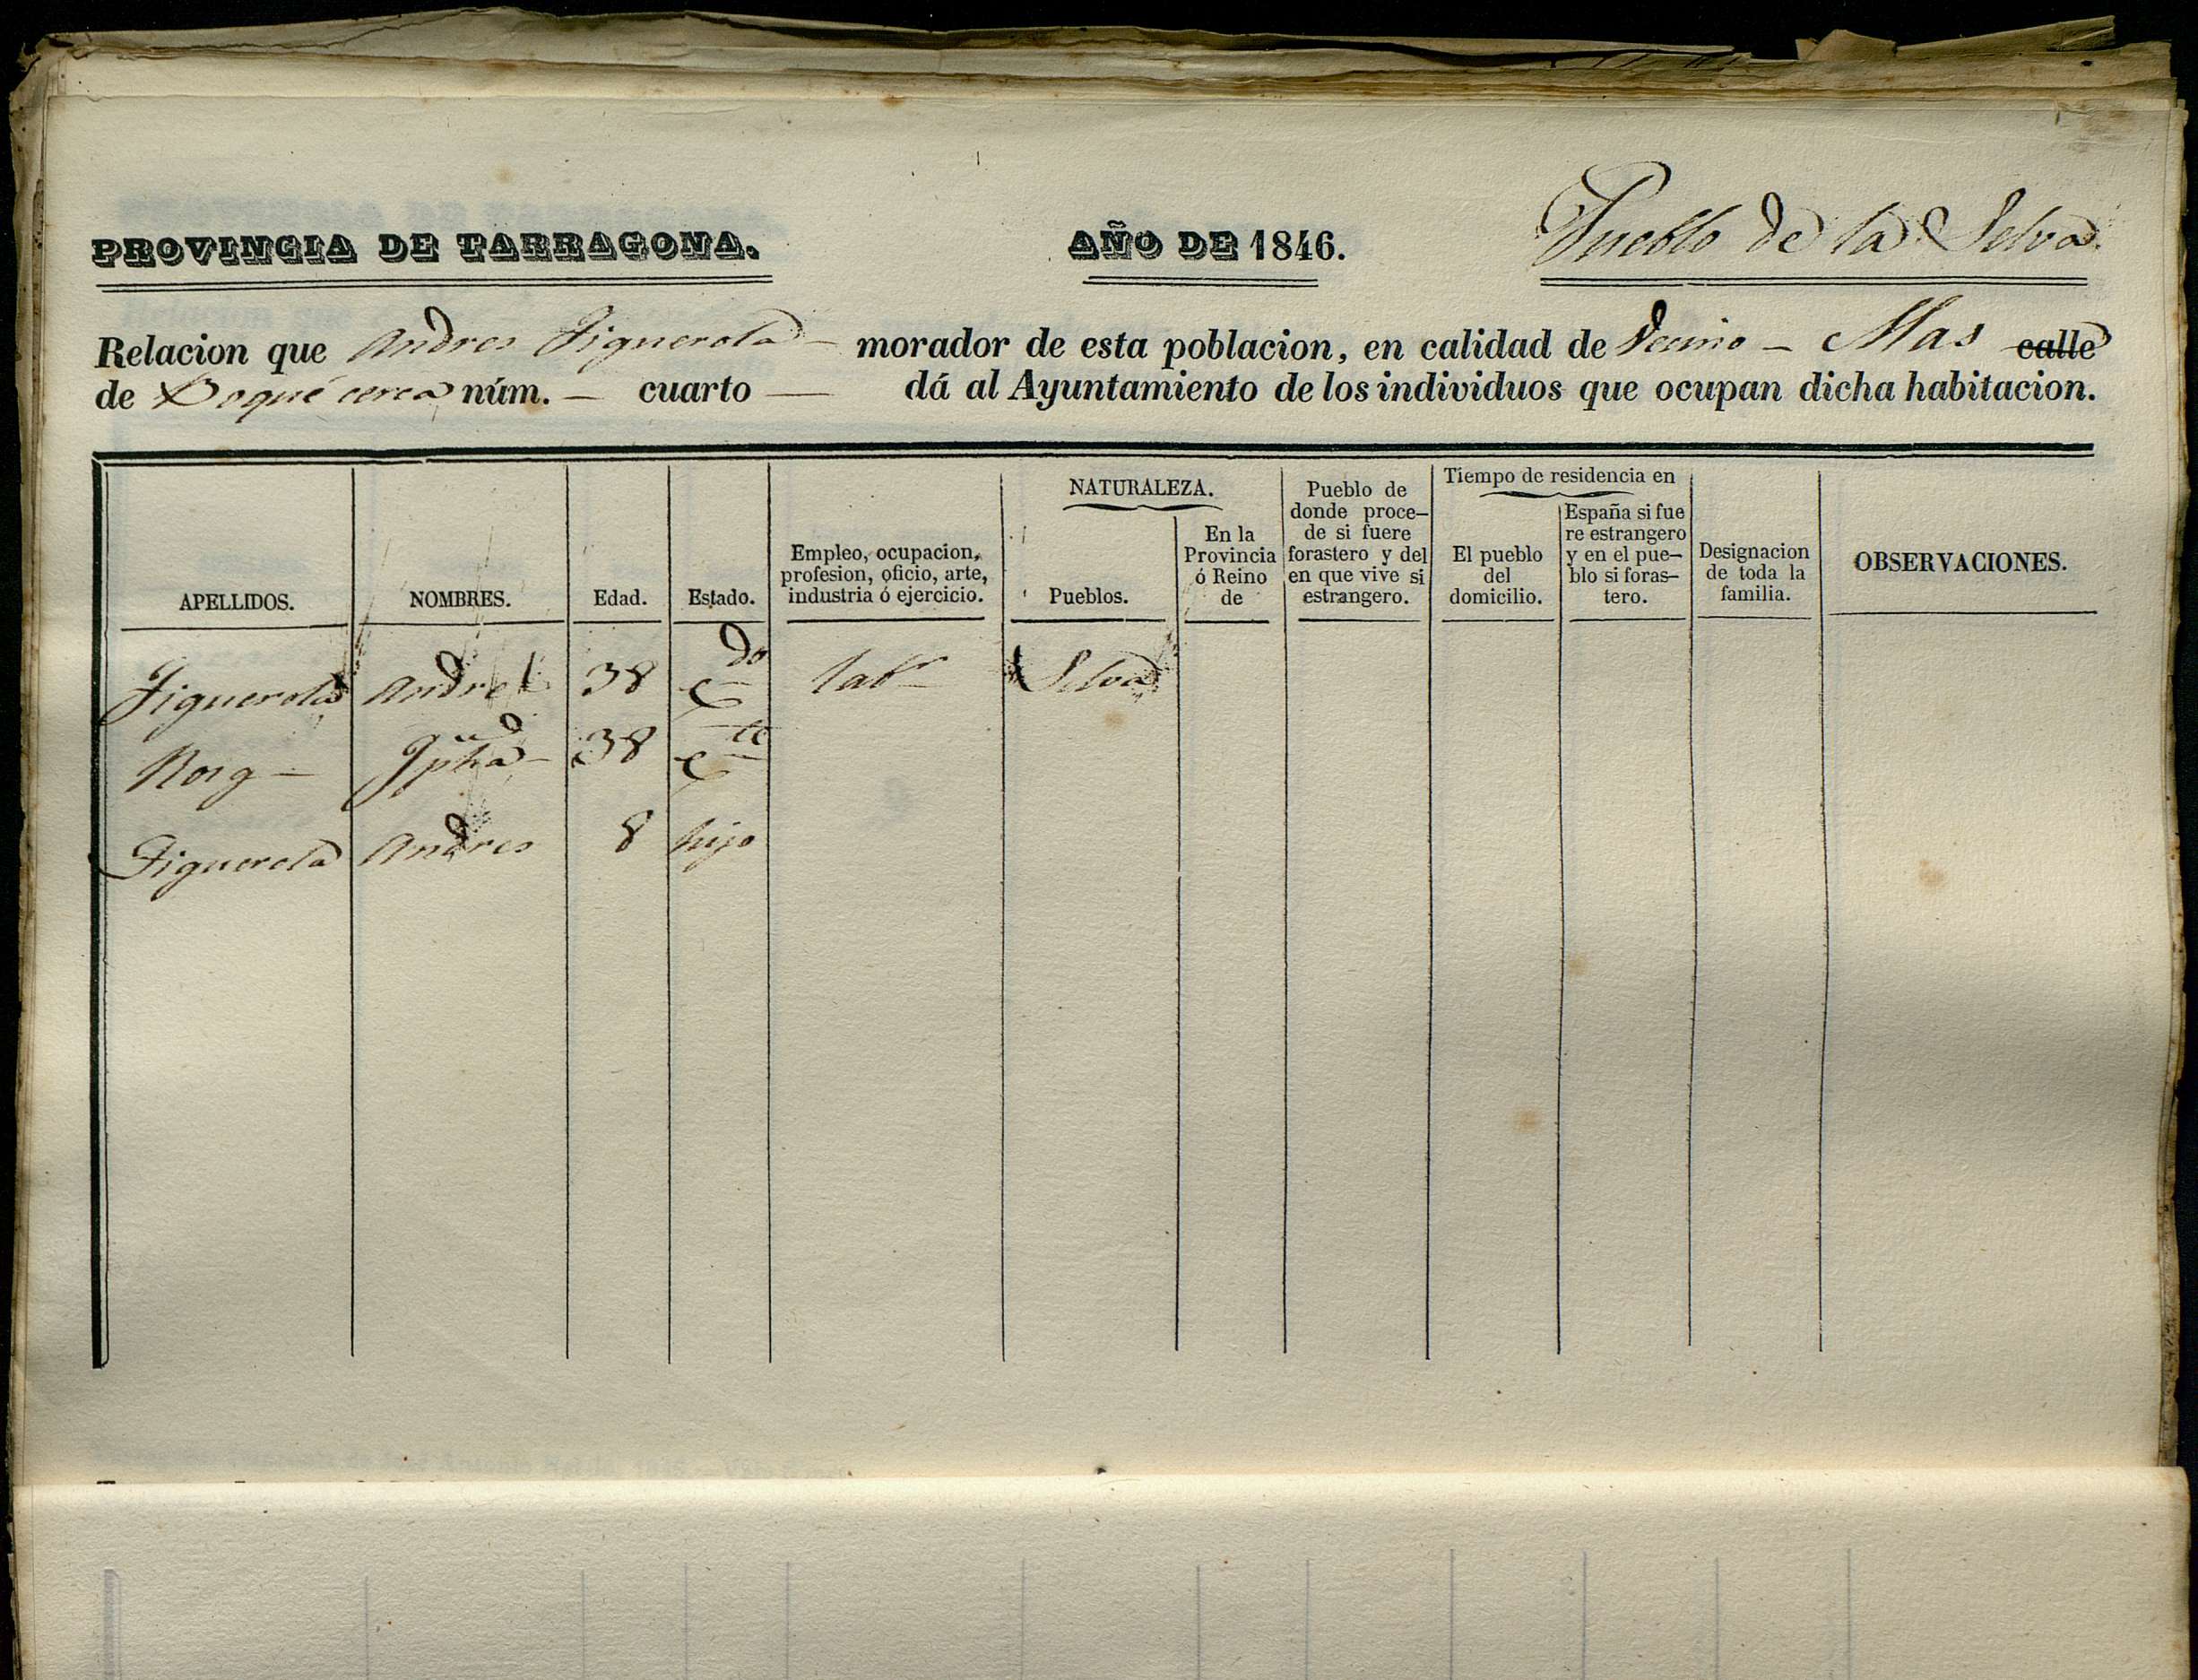 PROVINCIA DE TARRAGONA. AÑO DE 1846. Pueblo de la Selva
Relacion que Andres Figuerola morador de esta poblacion, en calidad de Vecino – Mas calle
de Boqué cerca núm. – cuarto — dá al Ayuntamiento de los individuos que ocupan dicha habitacion.
APELLIDOS.
NOMBRES.
Edad.
Estado.
Empleo, ocupacion,
profesion, oficio, arte,
industria ó ejercicio.
NATURALEZA.
Pueblos.
En la
Provincia
ó Reino
de
Pueblo de
donde proce–
de si fuere
forastero y del
en que vive si
estrangero.
Tiempo de residencia en
El pueblo
del
domicilio.
España si fue
re estrangero
y en el pue–
blo si foras–
tero.
Designacion
de toda la
familia.
OBSERVACIONES.
Figuerola Andres 38 Cdo labr Selva
Roig – Jpha – 38 Cte
Figuerola Andres 8 hijo